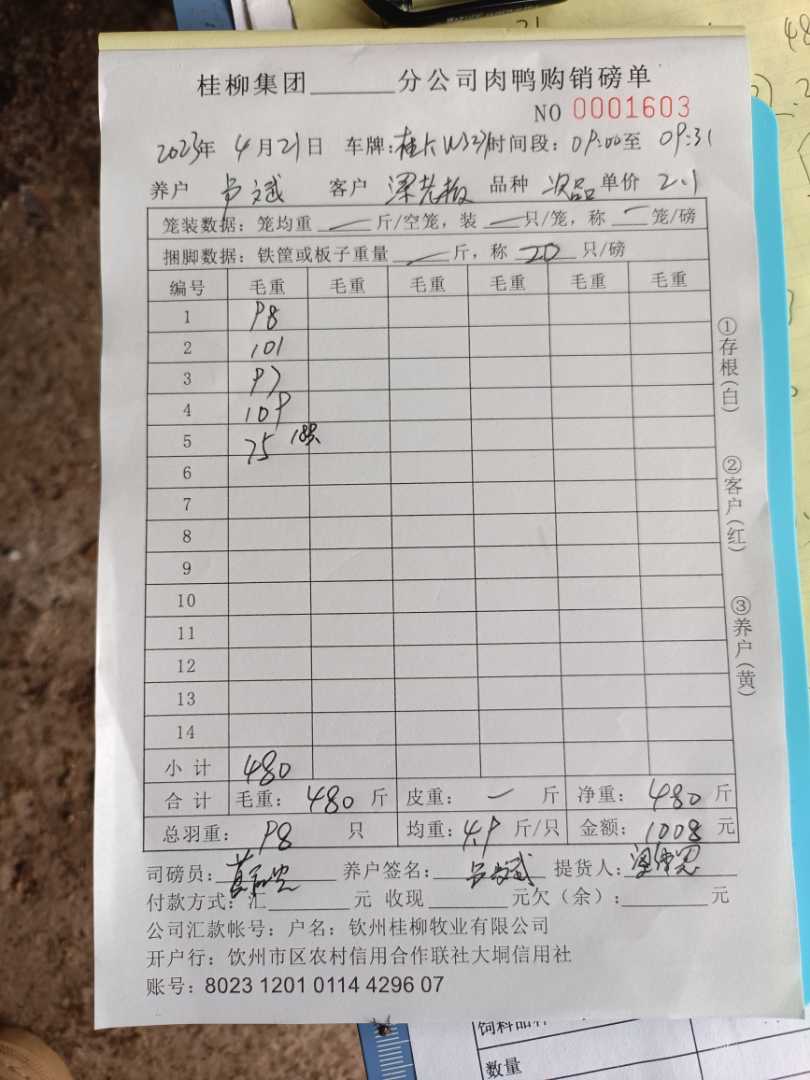 桂柳集团______分公司肉鸭购销磅单
NO 0001603
2023年 4月21日 车牌: 时间段: 09:00至 09:31
养户 客户 梁老板 品种 次品 单价 2.1
笼装数据: 笼均重 — 斤/空笼, 装 — 只/笼, 称 — 笼/磅
捆脚数据: 铁筐或板子重量 — 斤, 称 20 只/磅
编号 毛重 毛重 毛重 毛重 毛重 毛重
1 98
2 101
3 97
4 109
5 75 18只
6
7
8
9
10
11
12
13
14
小计 480
合计 毛重: 480 斤 皮重: — 斤 净重: 480 斤
总羽重: 98 只 均重: 4.9 斤/只 金额: 1008 元
司磅员: 养户签名: 提货人:
付款方式: 汇______元 收现______元欠(余):______元
公司汇款帐号: 户名: 钦州桂柳牧业有限公司
开户行: 钦州市区农村信用合作联社大垌信用社
账号: 8023 1201 0114 4296 07
①存根(白)
②客户(红)
③养户(黄)
饲料品种
数量